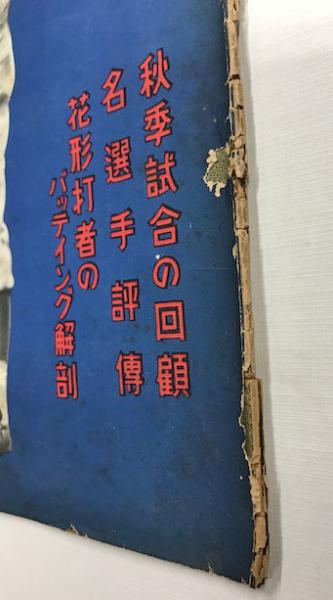 秋季試合の回顧
名選手評傳
花形打者の
バッテイング解剖